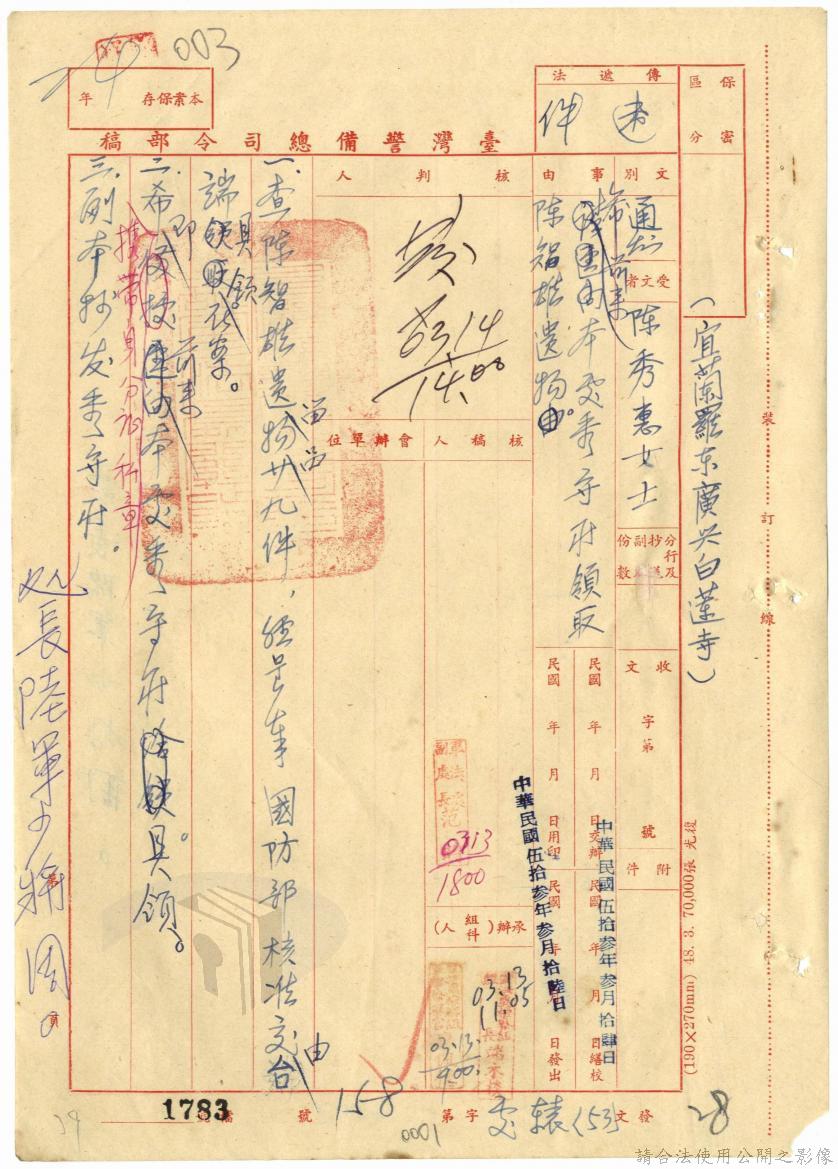 003
保密
區分
傳遞法
速件
本案保存
年
臺灣警備總司令部稿
(宜蘭羅東廣興白蓮寺)
文別
通知
受文者
陳秀惠女士
分行及抄送副本份數
收文
字第
號
附件
事由
希前來本處秀守所領取
陳智雄遺物。
民國 年 月 日交辦
民國 年 月 日繕校
民國 年 月 日用印
民國 年 月 日發出
中華民國伍拾參年參月拾肆日
中華民國伍拾參年參月拾陸日
核判人
0314
1400
核稿人
會辦單位
軍法處
副處長范
0313
1800
承辦(組科人)
03.13.
1105
03.13.
900.
一、查陳智雄遺物廿九件,經呈奉 國防部核准交由台
端具領在案。
二、希即前來本處秀守所具領。
攜帶身分証私章
三、副本抄发秀守所。
處長陸軍少將周
第
頁
裝訂線
(190×270mm) 48. 3. 70,000張 光復
發文
(53)
字第
158
號
1783
0001
28
29
請合法使用公開之影像